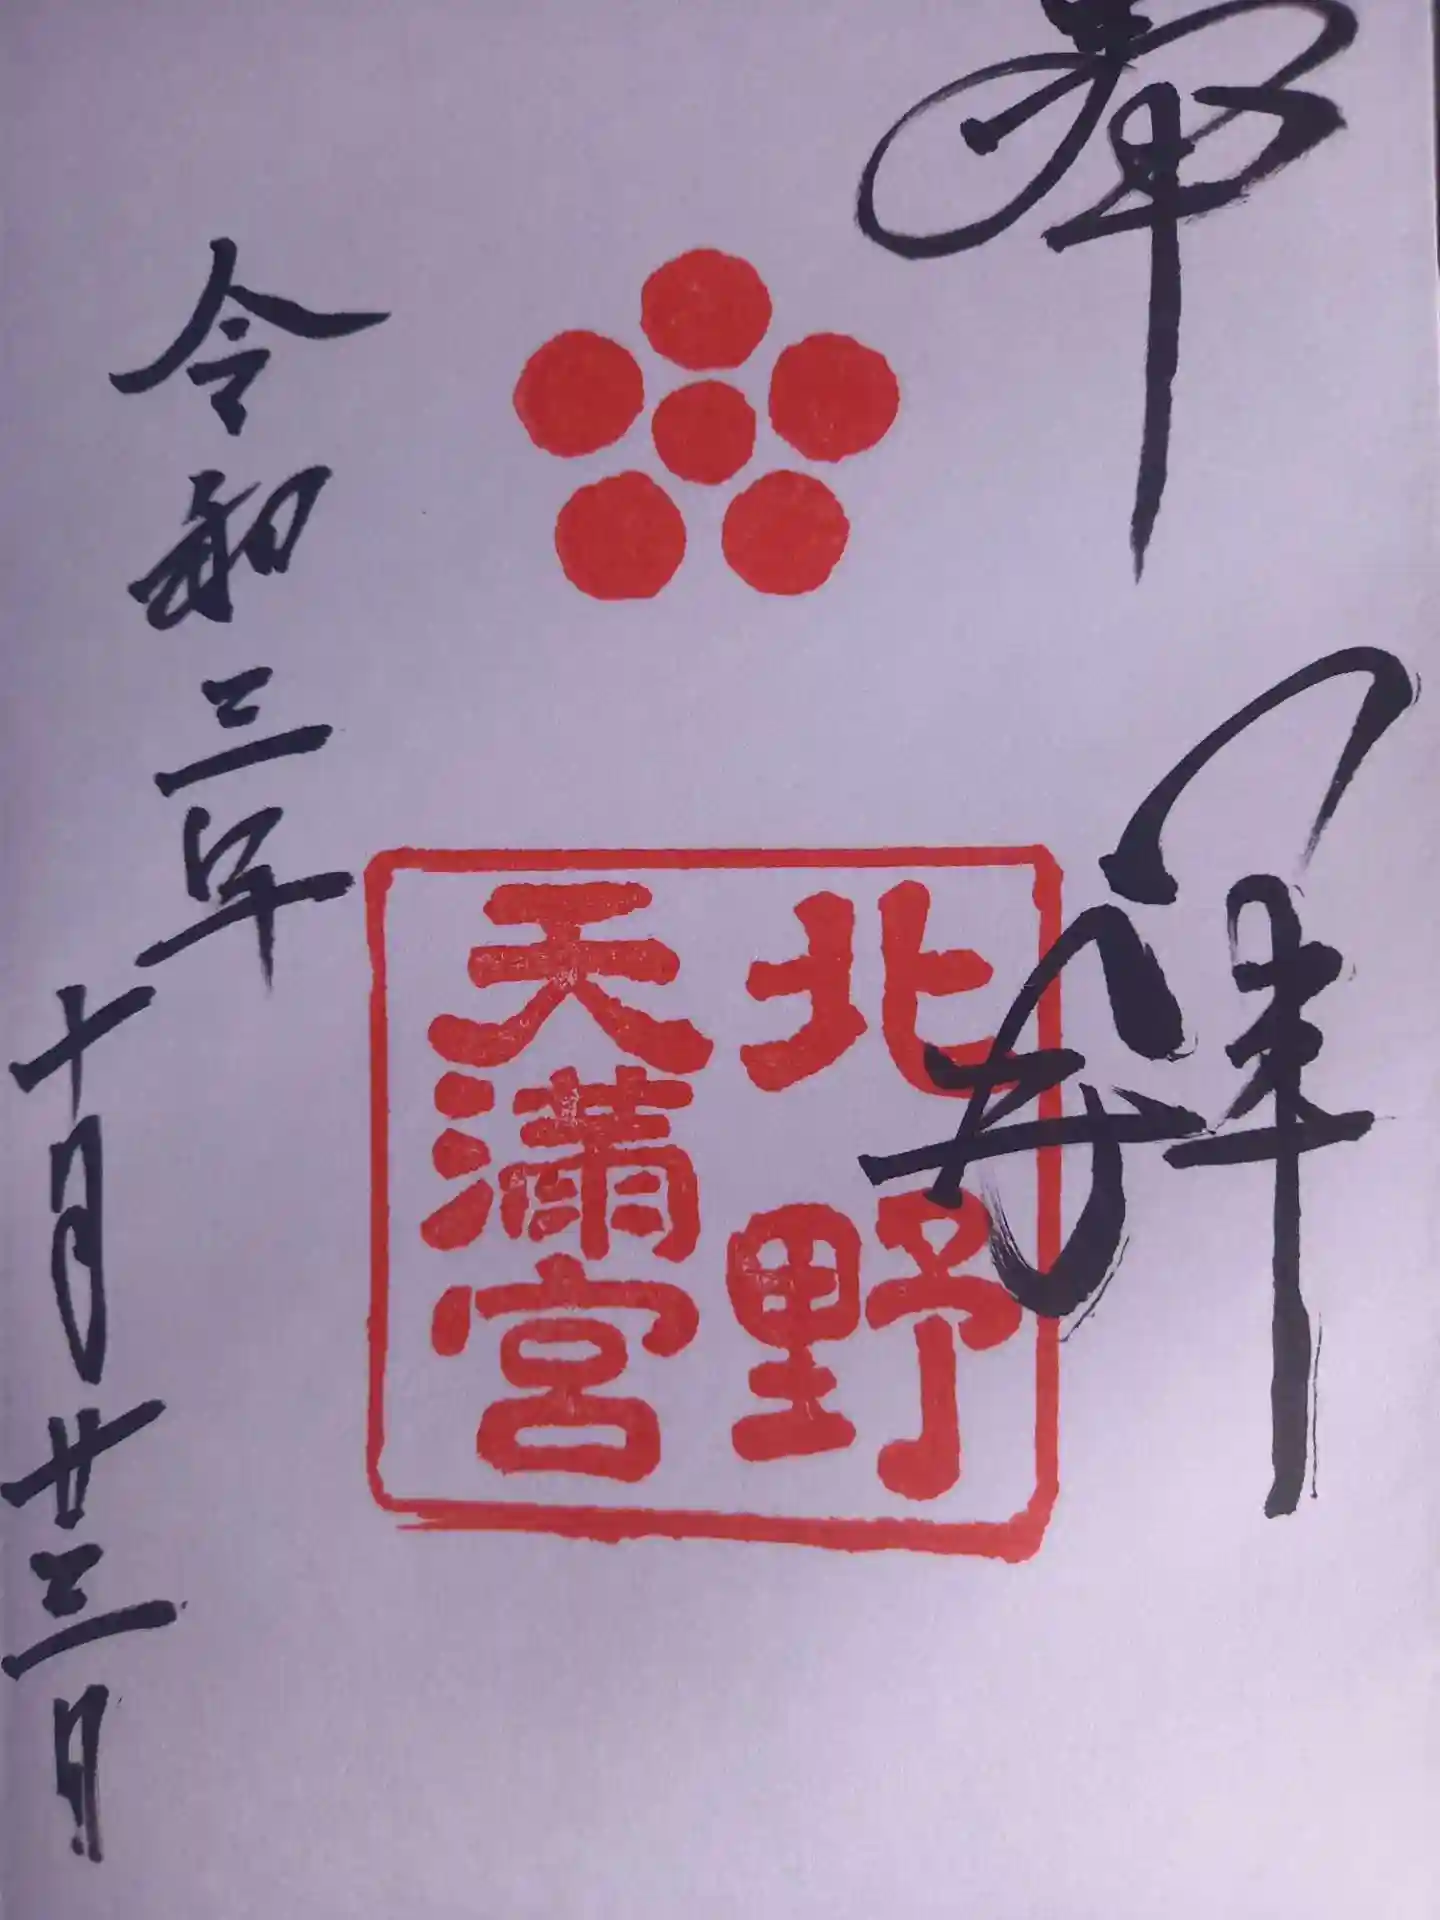 奉拜
北野
天満宮
令和三年十月廿三日